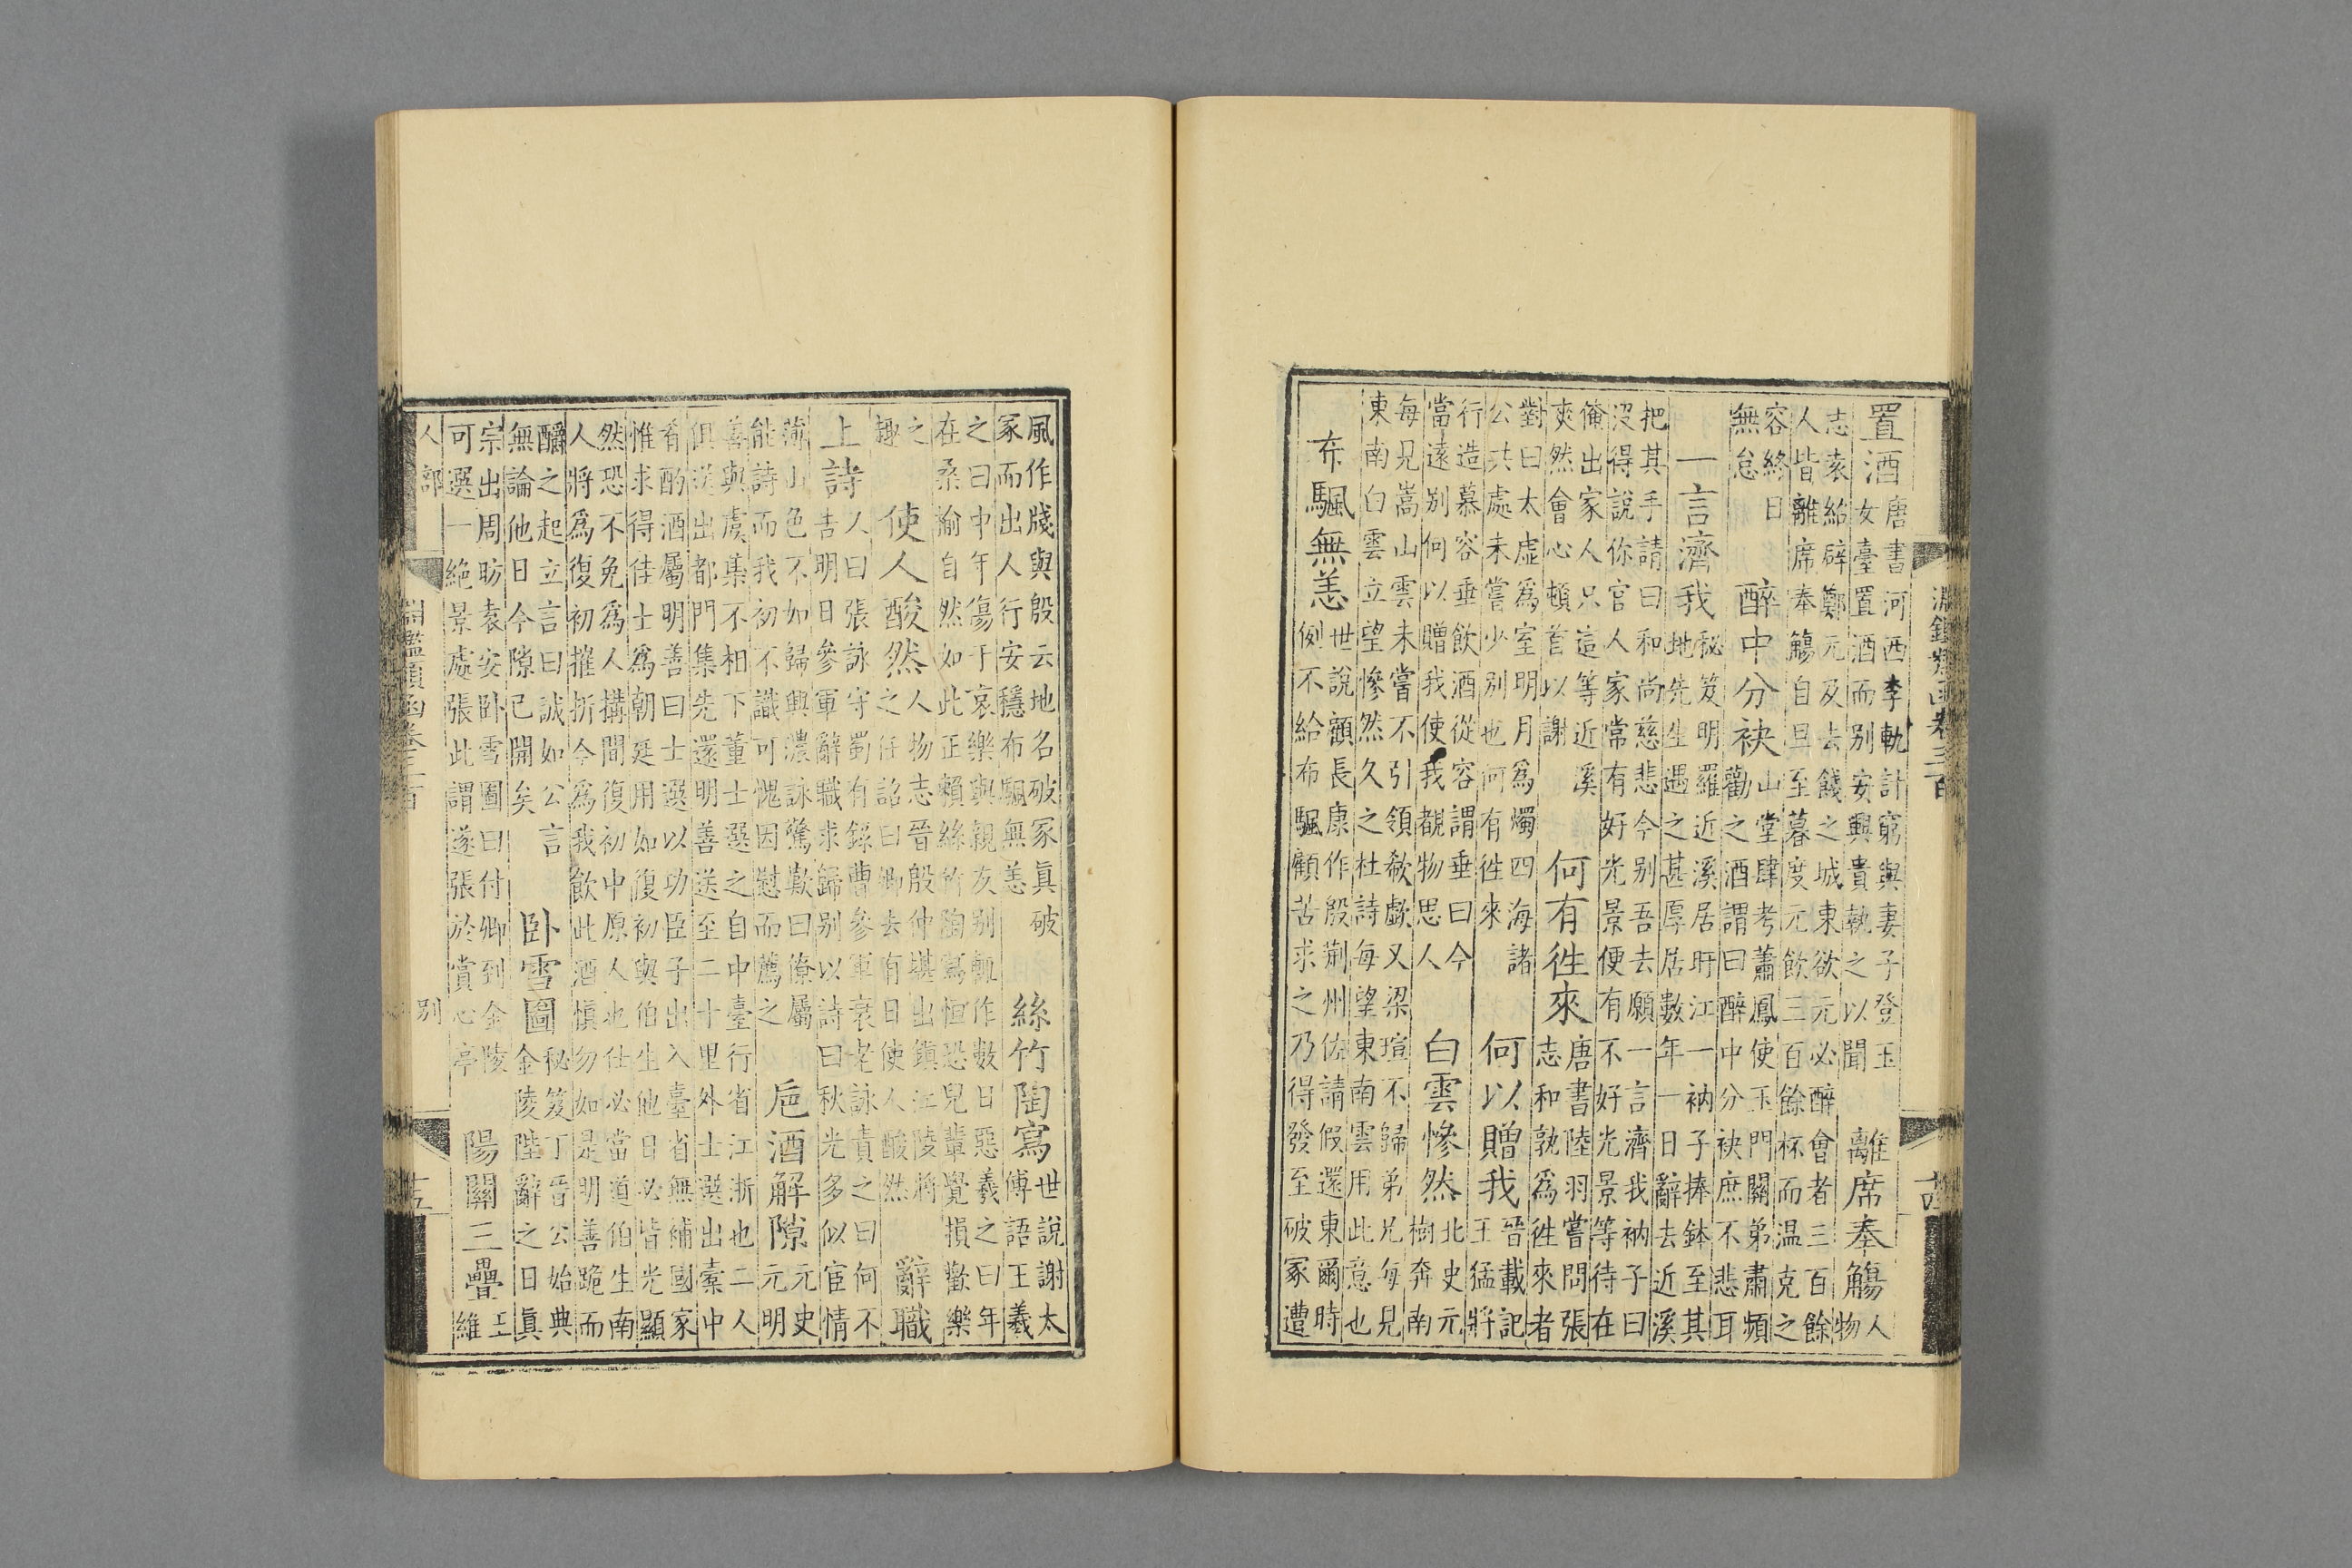 淵鑑類函卷三百
十四
置酒
唐書河西李軌計窮與妻子登玉
女臺置酒而別安興貴執之以聞
離席奉觴
人
物
志袁紹辟鄭元及去餞之城東欲元必醉會者三百餘
人皆離席奉觴自旦至暮度元飲三百餘杯而温克之
容終日
無怠
醉中分袂
山堂肆考蕭鳳使玉門關弟肅頻
勸之酒謂曰醉中分袂庶不悲耳
一言濟我
秘笈明羅近溪居盱江一衲子捧鉢至其
地先生遇之甚厚居數年一日辭去近溪
把其手請曰和尚慈悲今别吾去願一言濟我衲子曰
没得說你官人家常有好光景便有不好光景等待在
俺出家人只這等近溪
爽然會心頓首以謝
何有徃來
唐書陸羽嘗問張
志和孰爲徃來者
對曰太虛爲室明月爲燭四海諸
公共處未嘗少别也何有徃來
何以贈我
晉載記
王猛將
行造慕容垂飲酒從容謂垂曰今
當遠别何以贈我使我覩物思人
白雲慘然
北史元
樹奔南
每見嵩山雲未嘗不引領欷歔又梁瑄不歸弟兄每見
東南白雲立望慘然久之杜詩每望東南雲用此意也
布颿無恙
世說顧長康作殷荆州佐請假還東爾時
例不給布颿顧苦求之乃得發至破冢遭
風作牋與殷云地名破冢眞破
冢而出人行安穩布颿無恙
絲竹陶寫
世說謝太
傅語王羲
之曰中年傷于哀樂與親友别輒作數日惡羲之曰年
在桑榆自然如此正賴絲竹陶寫恒恐兒輩覺損歡樂
之
趣
使人酸然
人物志晉殷仲堪出鎮江陵將
之任詔曰卿去有日使人酸然
辭職
上詩
人曰張詠守蜀有錄曹參軍衰老詠責之曰何不
吿明日參軍辭職求歸别以詩曰秋光多似宦情
薄山色不如歸興濃詠驚歎曰僚屬
能詩而我初不識可愧因慰而薦之
巵酒解隙
元史
元明
善與虞集不相下董士選之自中臺行省江浙也二人
俱送出都門集先還明善送至二十里外士選出橐中
肴酌酒屬明善曰士選以功臣子出入臺省無補國家
惟求得佳士爲朝廷用如復初與伯生他日必皆光顯
然恐不免爲人搆間復初中原人也仕必當道伯生南
人將爲復初摧折今爲我飲此酒愼勿如是明善跪而
釂之起立言曰誠如公言
無論他日今隙已開矣
卧雪圖
秘笈丁晉公始典
金陵陛辭之日眞
宗出周昉袁安卧雪圖曰付卿到金陵
可選一絶景處張此謂遂張於賞心亭
陽關三疊
王
維
人部
淵鑑類函卷三百
别
十五